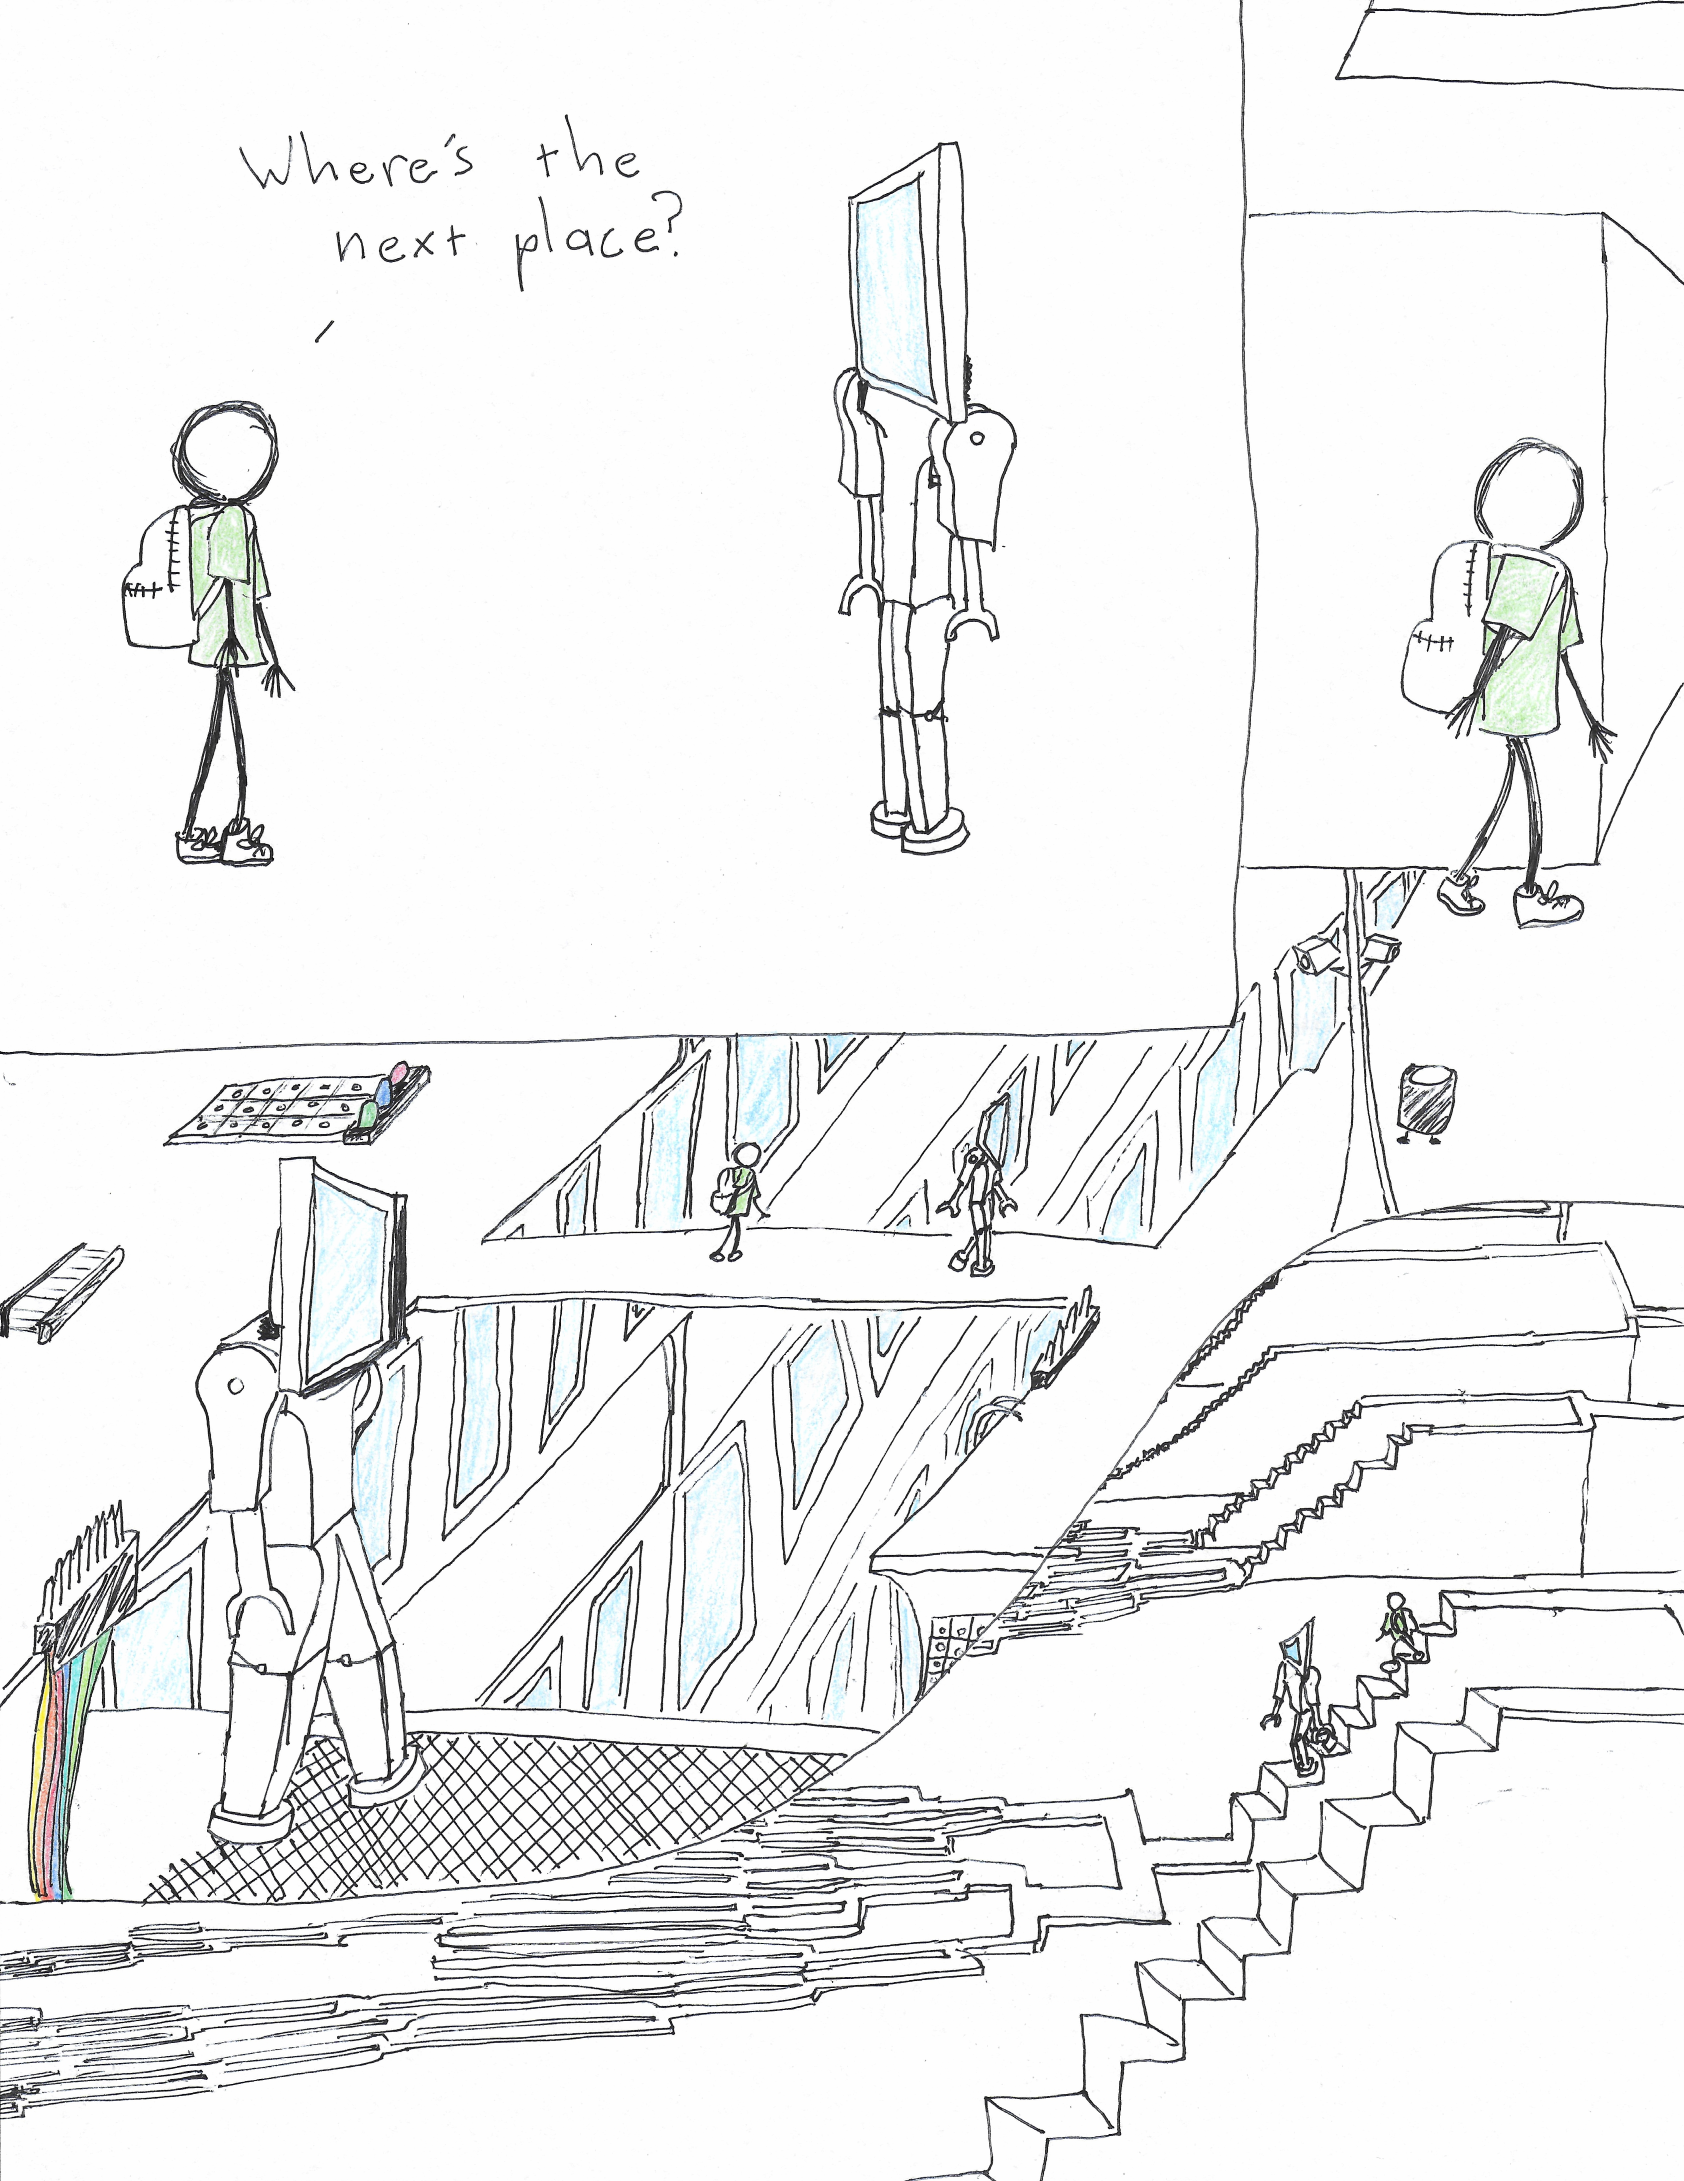 Where's the
next place?